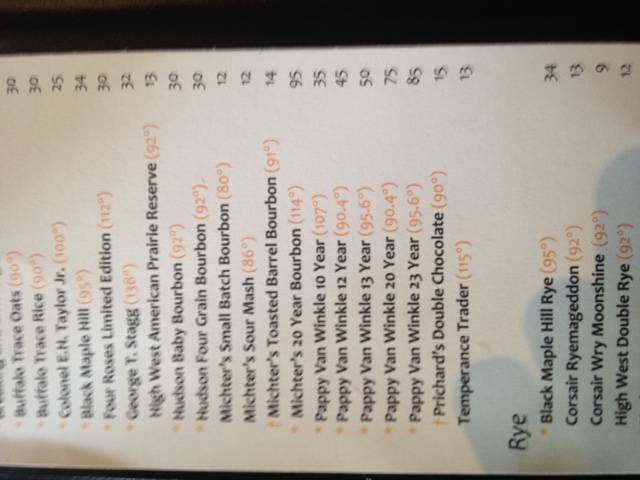 * Buffalo Trace Oats (90°) 30
* Buffalo Trace Rice (90°) 30
* Colonel E.H. Taylor Jr. (100°) 25
* Black Maple Hill (95°) 34
* Four Roses Limited Edition (112°) 30
* George T. Stagg (138°) 32
High West American Prairie Reserve (92°) 13
* Hudson Baby Bourbon (92°) 30
* Hudson Four Grain Bourbon (92°) 30
Michter's Small Batch Bourbon (80°) 12
Michter's Sour Mash (86°) 12
† Michter's Toasted Barrel Bourbon (91°) 14
* Michter's 20 Year Bourbon (114°) 95
* Pappy Van Winkle 10 Year (107°) 35
* Pappy Van Winkle 12 Year (90.4°) 45
* Pappy Van Winkle 13 Year (95.6°) 50
* Pappy Van Winkle 20 Year (90.4°) 75
* Pappy Van Winkle 23 Year (95.6°) 85
† Prichard's Double Chocolate (90°) 15
Temperance Trader (115°) 13
Rye
* Black Maple Hill Rye (95°) 34
Corsair Ryemageddon (92°) 13
Corsair Wry Moonshine (92°) 9
High West Double Rye (92°) 12